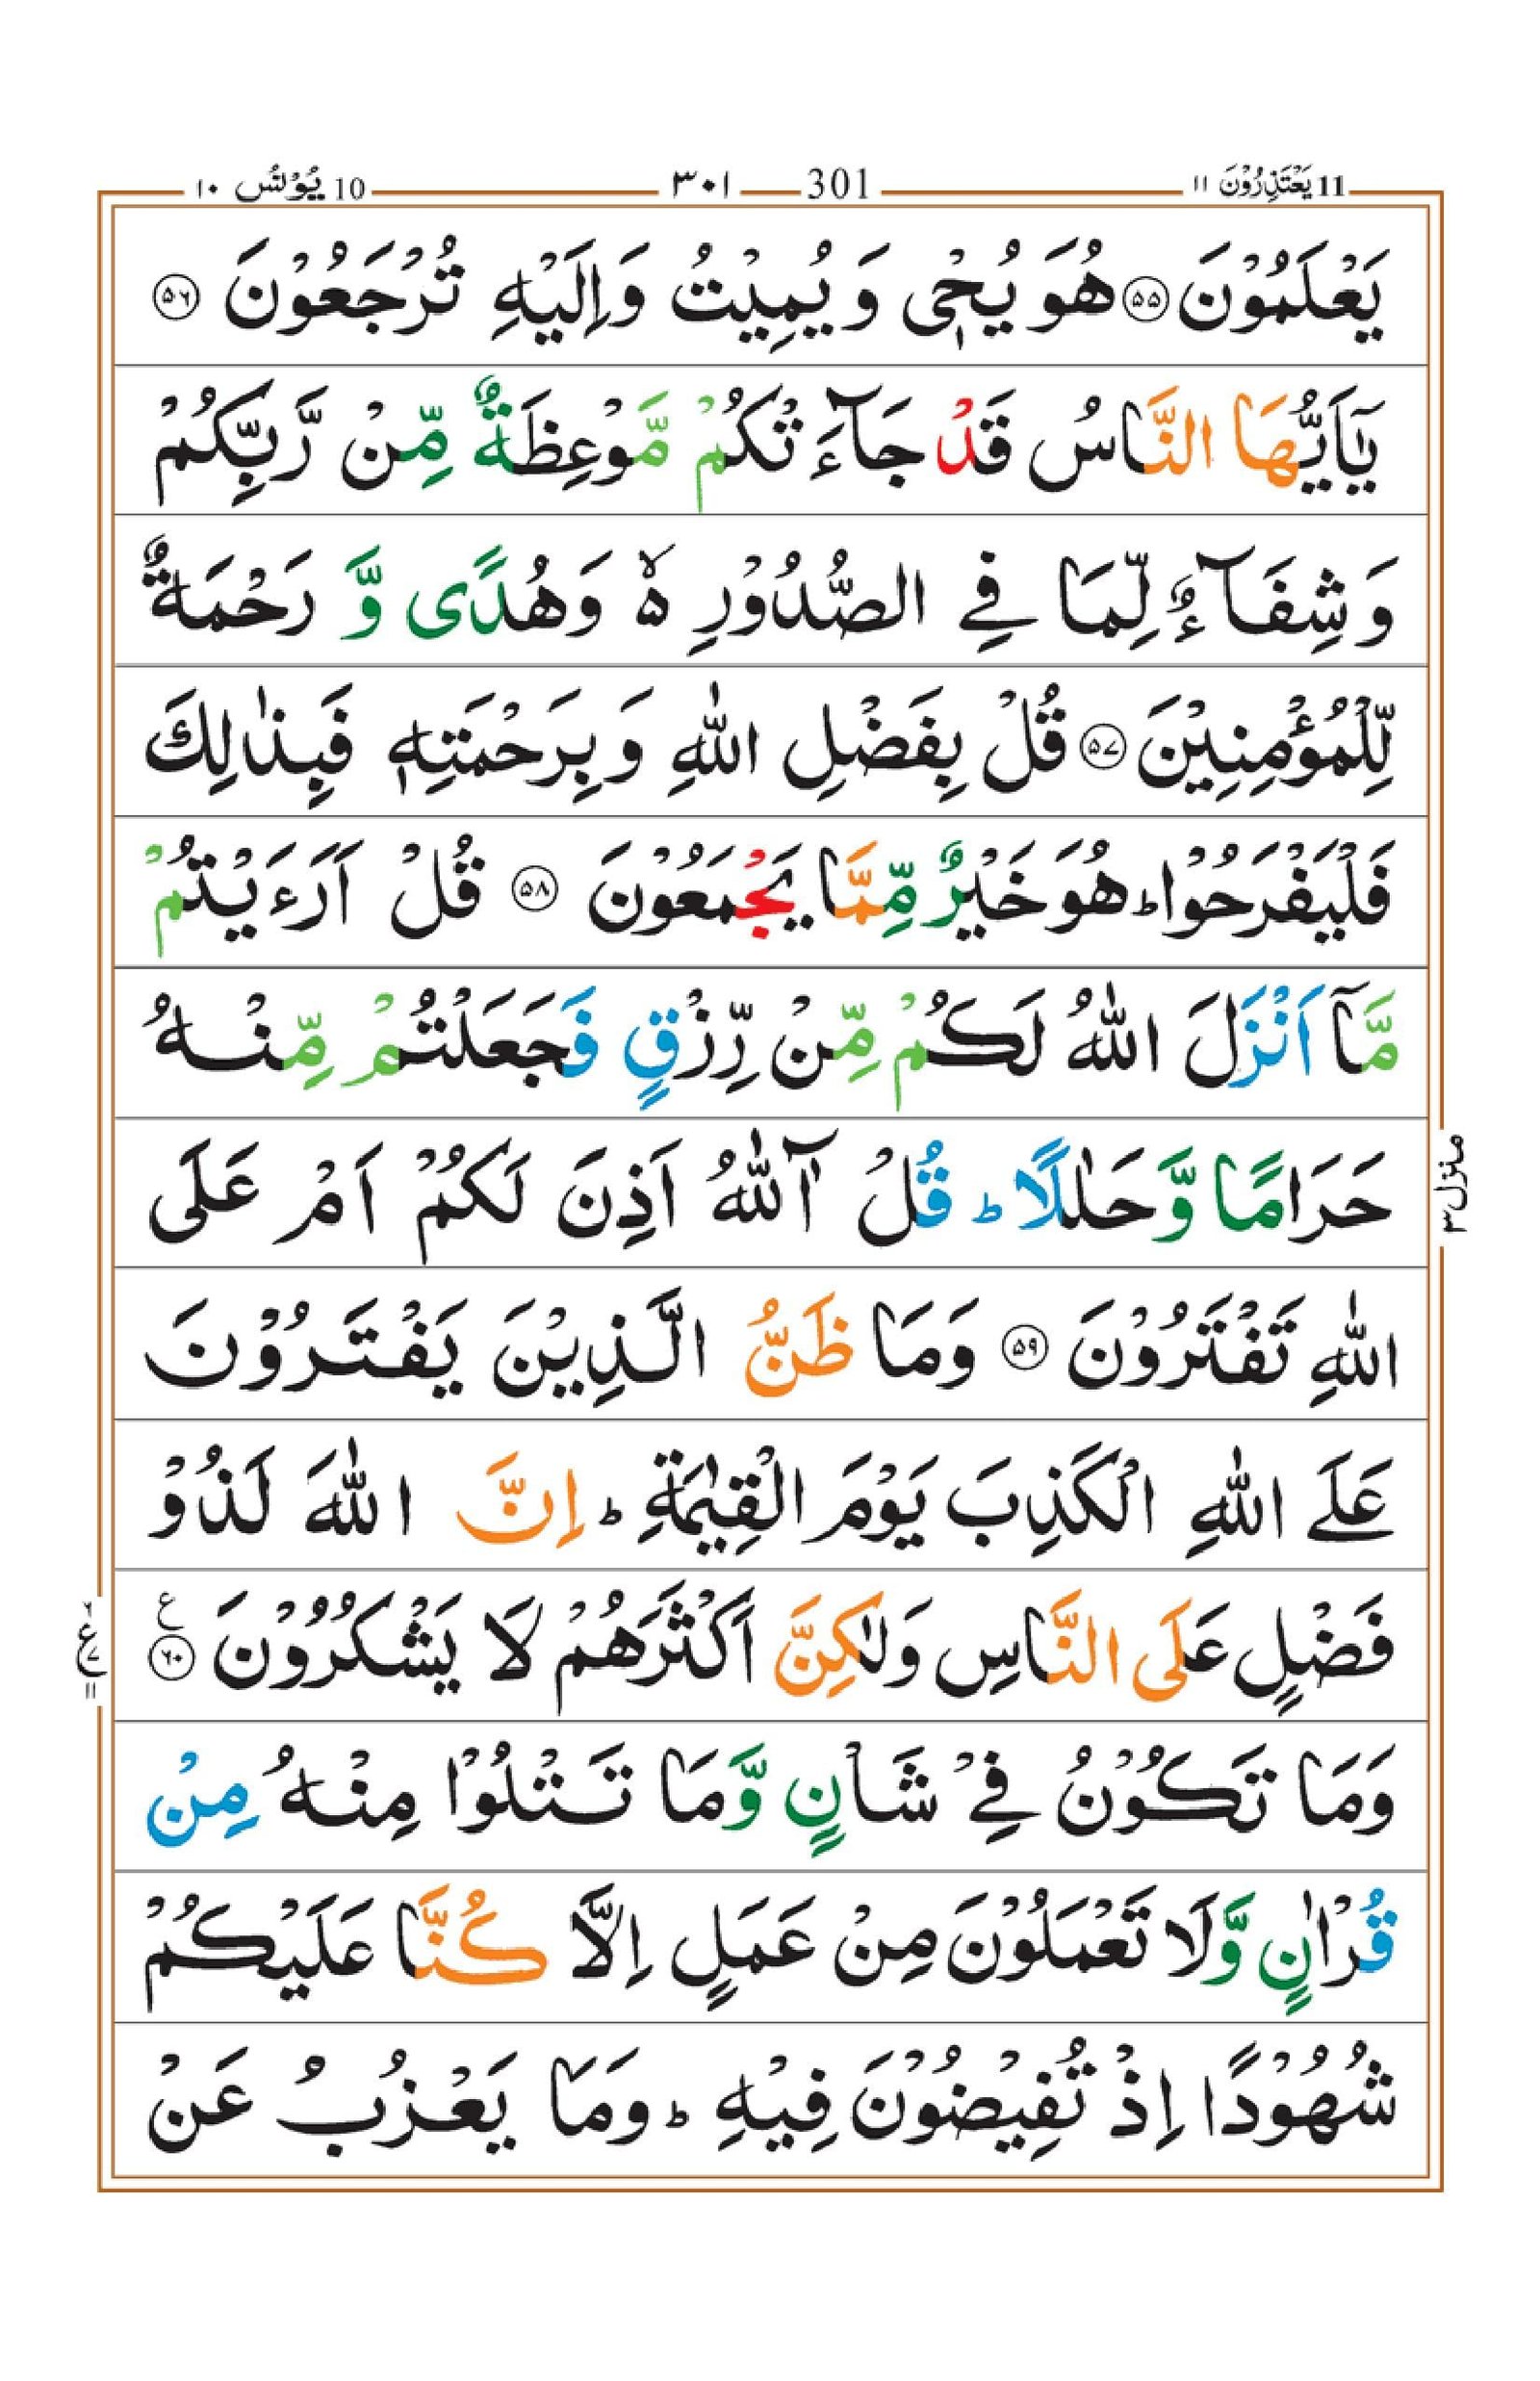 11 یَعْتَذِرُوْنَ ۱۱ 301 ۳۰۱ 10 یُوْنُس ۱۰
یَعْلَمُوْنَ ۝۵۵ هُوَ یُحْیٖ وَ یُمِیْتُ وَاِلَیْهِ تُرْجَعُوْنَ ۝۵۶
یٰۤاَیُّهَا النَّاسُ قَدْ جَآءَتْكُمْ مَّوْعِظَةٌ مِّنْ رَّبِّكُمْ
وَ شِفَآءٌ لِّمَا فِی الصُّدُوْرِ ۙ۬ وَهُدًی وَّ رَحْمَةٌ
لِّلْمُؤْمِنِیْنَ ۝۵۷ قُلْ بِفَضْلِ اللّٰهِ وَ بِرَحْمَتِهٖ فَبِذٰلِكَ
فَلْیَفْرَحُوْا ؕ هُوَ خَیْرٌ مِّمَّا یَجْمَعُوْنَ ۝۵۸ قُلْ اَرَءَیْتُمْ
مَّاۤ اَنْزَلَ اللّٰهُ لَكُمْ مِّنْ رِّزْقٍ فَجَعَلْتُمْ مِّنْهُ
حَرَامًا وَّ حَلٰلًا ؕ قُلْ آٰللّٰهُ اَذِنَ لَكُمْ اَمْ عَلَی
اللّٰهِ تَفْتَرُوْنَ ۝۵۹ وَمَا ظَنُّ الَّذِیْنَ یَفْتَرُوْنَ
عَلَی اللّٰهِ الْكَذِبَ یَوْمَ الْقِیٰمَةِ ؕ اِنَّ اللّٰهَ لَذُوْ
فَضْلٍ عَلَی النَّاسِ وَلٰكِنَّ اَكْثَرَهُمْ لَا یَشْكُرُوْنَ ۝۶۰ ع
وَمَا تَكُوْنُ فِیْ شَاْنٍ وَّمَا تَتْلُوْا مِنْهُ مِنْ
قُرْاٰنٍ وَّلَا تَعْمَلُوْنَ مِنْ عَمَلٍ اِلَّا كُنَّا عَلَیْكُمْ
شُهُوْدًا اِذْ تُفِیْضُوْنَ فِیْهِ ؕ وَمَا یَعْزُبُ عَنْ
منزل ۳
ع ۷ ۱۱